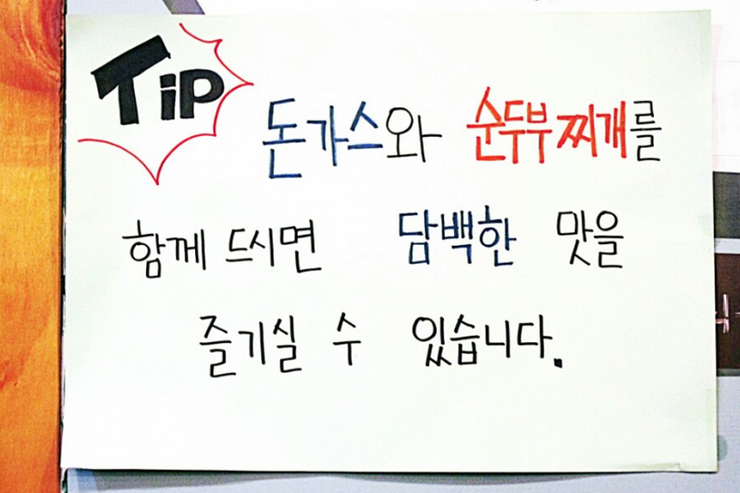 TiP
돈가스와 순두부찌개를
함께 드시면 담백한 맛을
즐기실 수 있습니다.